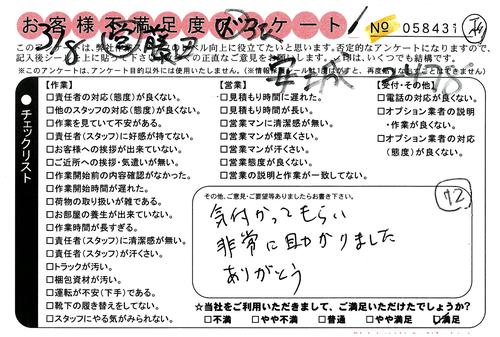 お客様不満足度アンケート!
No 058431
3/8
このアンケートは、弊社作業スタッフのレベル向上に役立てたいと思います。否定的なアンケートになりますので、
チェックリスト
【作業】
□責任者の対応(態度)が良くない。
□他のスタッフの対応(態度)が良くない。
□作業を見ていて不安がある。
□責任者(スタッフ)に好感が持てない。
□お客様への挨拶が出来ていない。
□ご近所への挨拶・気遣いが無い。
□作業開始前の内容確認がなかった。
□作業開始時間が遅れた。
□荷物の取り扱いが雑である。
□お部屋の養生が出来ていない。
□作業時間が長すぎる。
□責任者(スタッフ)に清潔感が無い。
□責任者(スタッフ)が汗くさい。
□トラックが汚い。
□梱包資材が汚い。
□運転が不安(下手)である。
□靴下の履き替えをしてない。
□スタッフにやる気がみられない。
【営業】
□見積もり時間に遅れた。
□見積もり時間が長い。
□営業マンに清潔感が無い。
□営業マンが煙草くさい。
□営業マンが汗くさい。
□営業態度が良くない。
□営業の説明と作業が一致してない。
【受付・その他】
□電話の対応が良くない。
□オプション業者の説明
・作業が良くない。
□オプション業者の対応
(態度)が良くない。
その他、ご意見・ご要望等ありましたらお書き下さい。
12
気付かってもらい
非常に助かりました
ありがとう
☆当社をご利用いただきまして、ご満足いただけたでしょうか?
□不満 □やや不満 □普通 □やや満足 ☑満足